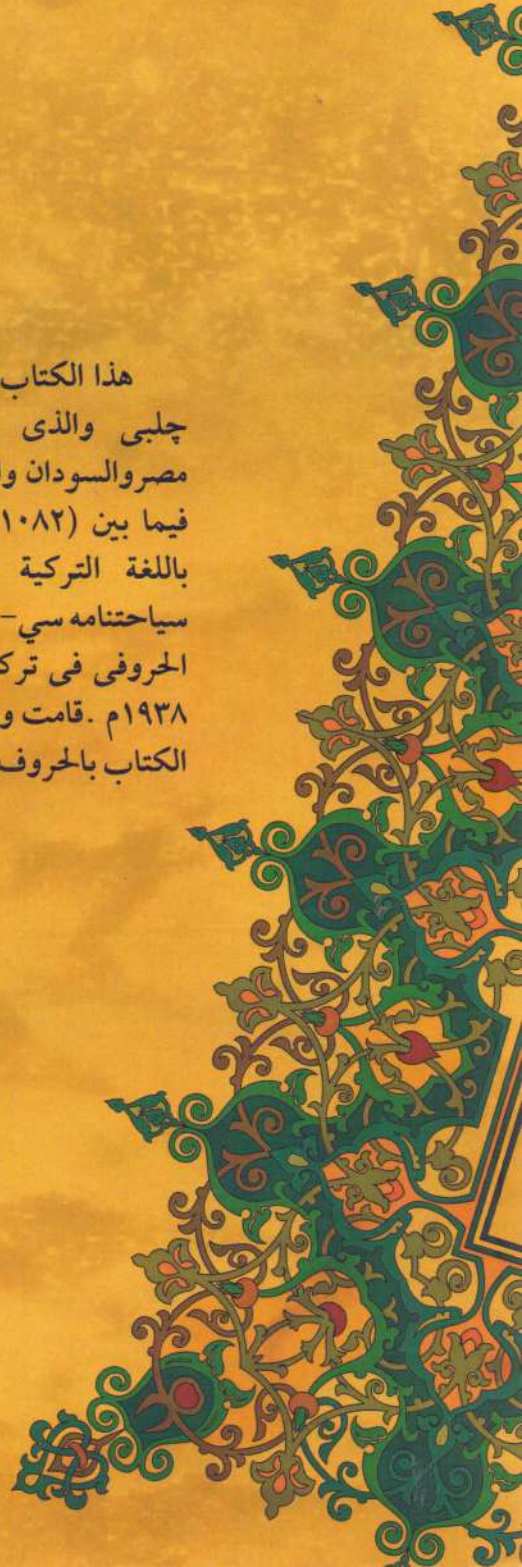 هذا الكتاب
چلبى والذى
مصروالسودان وا
فيما بين (١٠٨٢
باللغة التركية
سياحتنامه سي-
الحروفى فى ترك
١٩٣٨م .قامت و
الكتاب بالحروف